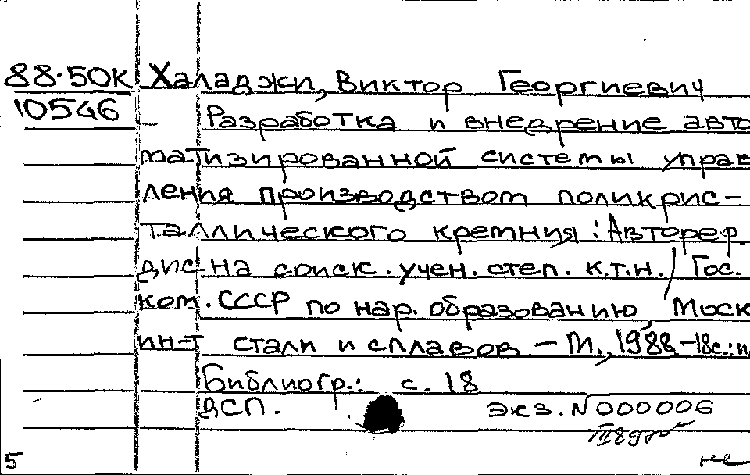 88-50к Халаджи, Виктор Георгиевич
10546
Разработка и внедрение авто
матизированной системы управ
ления производством поликрис-
таллического кремния: Автореф
дис. на соиск. учен. степ. к.т.н. / Гос.
ком. СССР по нар. образованию, Моск
ин-т стали и сплавов - М., 1988 - 18с.: и
Библиогр.: с. 18
ДСП. экз. N 000006
5